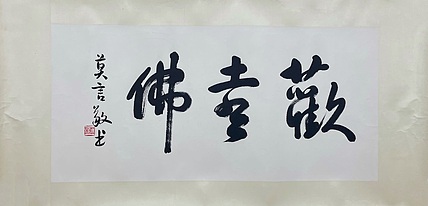 歡喜佛
莫言敬书